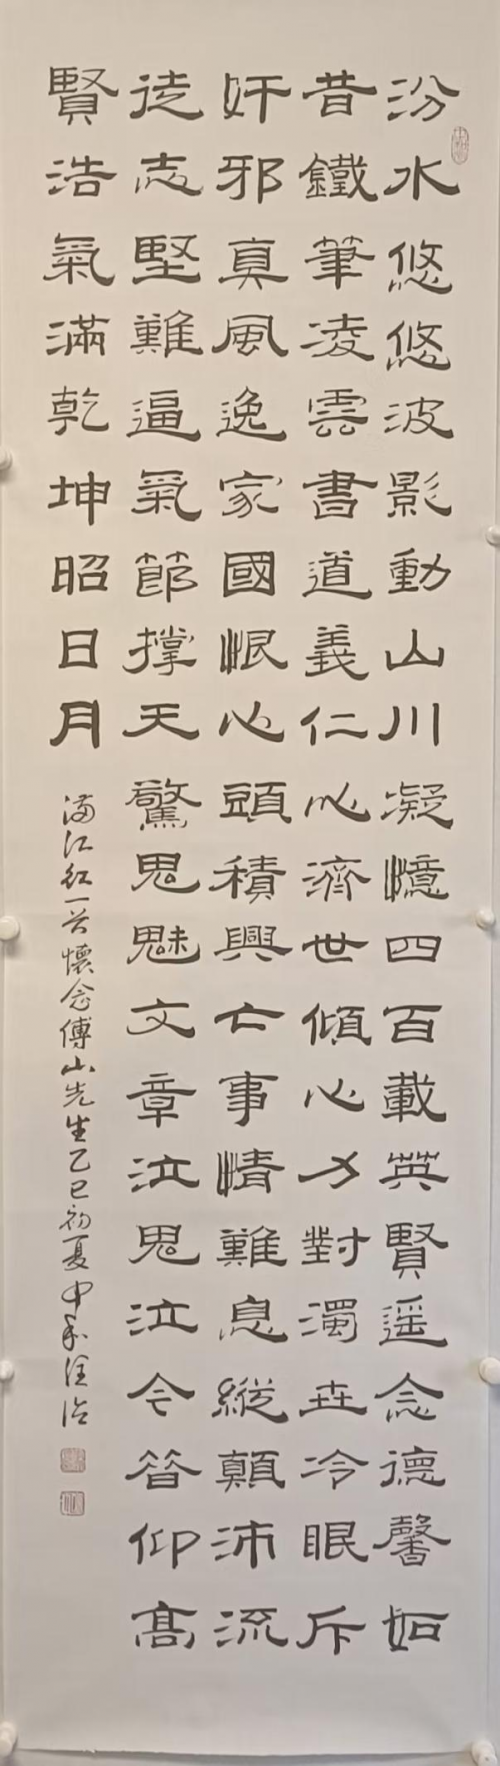 汾水悠悠波影動山川凝憶四百載英賢遥念德馨如
昔鐵筆凌雲書道義仁心濟世傾心力對濁卋冷眼斥
奸邪真風逸家國恨心頭積興亡事情難息縱顛沛流
徒志堅難逼氣節撐天驚鬼魅文章泣鬼泣今昔仰髙
賢浩氣滿乾坤昭日月
滿江紅一首懷念傅山先生乙巳初夏